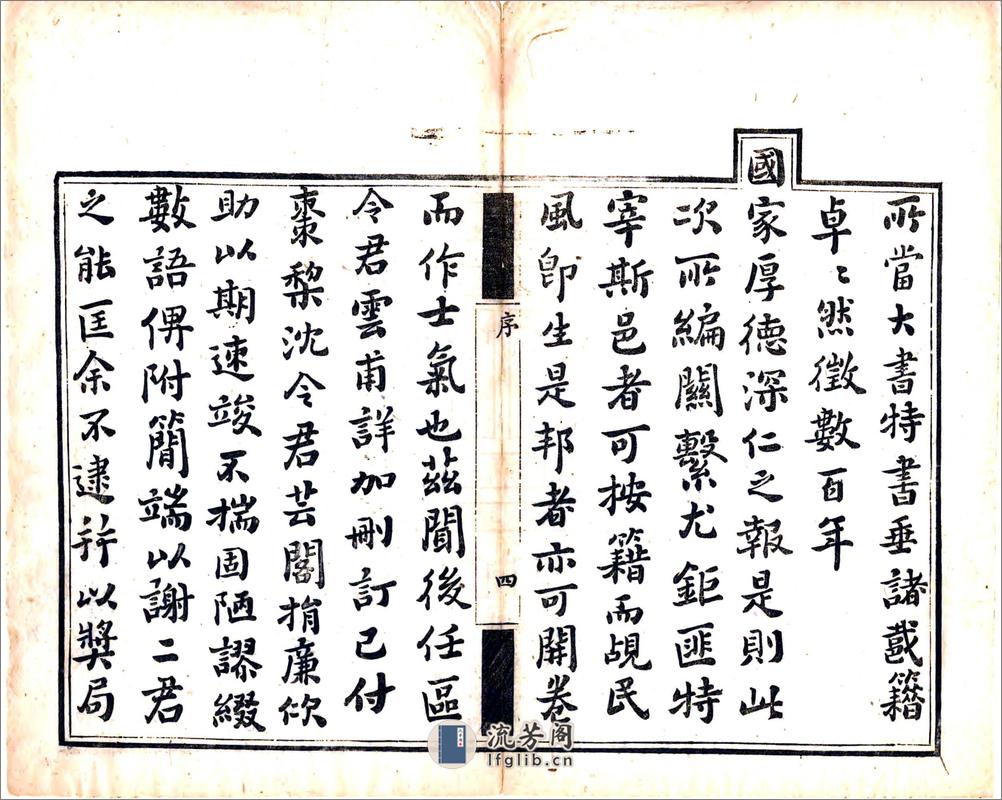 所當大書特書垂諸載籍
卓〻然徵數百年
國家厚德深仁之報是則此
次所編關繫尤鉅匪特
宰斯邑者可按籍而覘民
風卽生是邦者亦可開卷
序
四
而作士氣也茲聞後任區
令君雲甫詳加刪訂已付
棗梨沈令君芸閣捐廉佽
助以期速竣不揣固陋謬綴
數語俾附簡端以謝二君
之能匡余不逮并以奬局
流芳阁
lfglib.cn